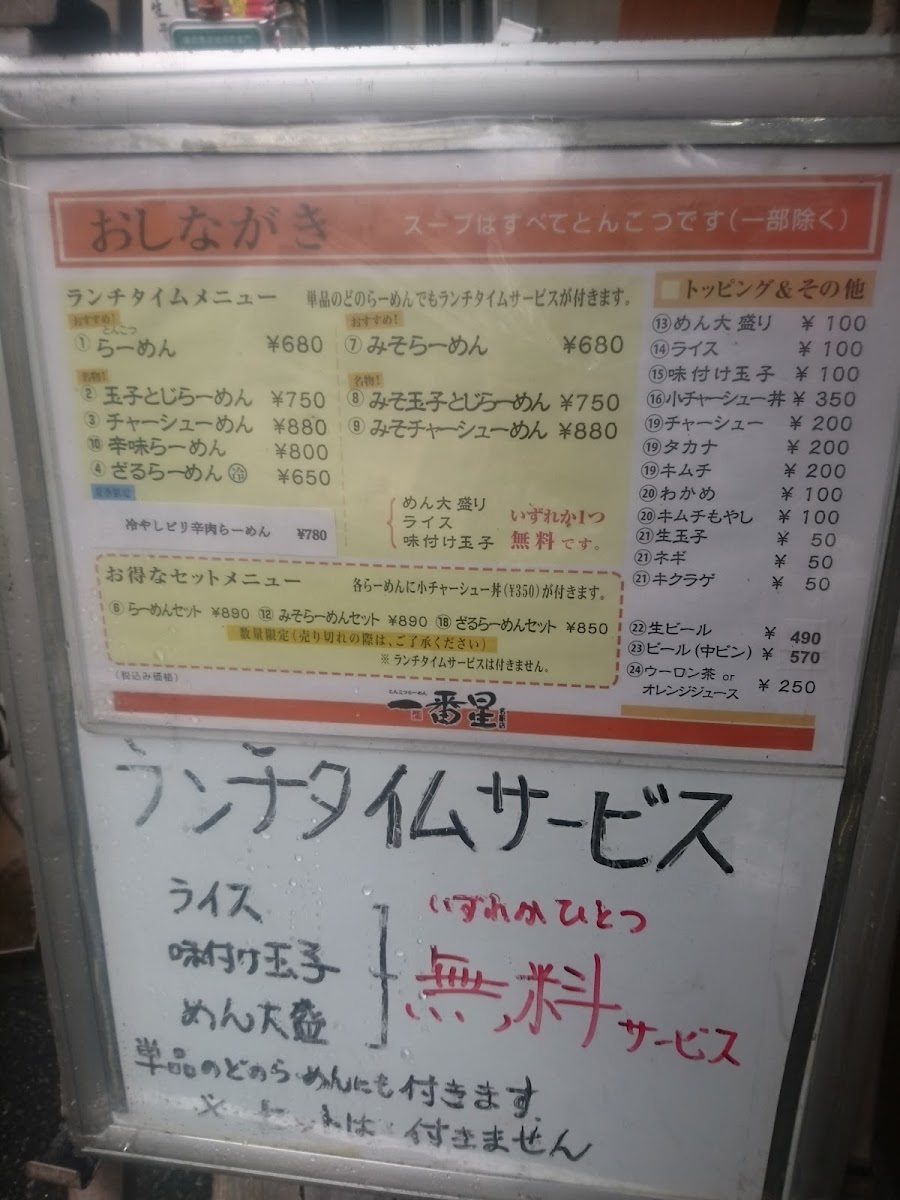 おしながき スープはすべてとんこつです(一部除く)
ランチタイムメニュー 単品のどのらーめんでもランチタイムサービスが付きます。
おすすめ!
とんこつ
①らーめん ¥680
名物!
②玉子とじらーめん ¥750
③チャーシューめん ¥880
⑩辛味らーめん ¥800
④ざるらーめん 冷 ¥650
夏季限定
冷やしピリ辛肉らーめん ¥780
おすすめ!
⑦みそらーめん ¥680
名物!
⑧みそ玉子とじらーめん ¥750
⑨みそチャーシューめん ¥880
めん大盛り
ライス
味付け玉子
いずれか1つ
無料です。
お得なセットメニュー 各らーめんに小チャーシュー丼(¥350)が付きます。
⑥らーめんセット ¥890 ⑫みそらーめんセット ¥890 ⑱ざるらーめんセット ¥850
数量限定(売り切れの際は、ご了承ください)
※ランチタイムサービスは付きません。
(税込み価格)
トッピング&その他
⑬めん大盛り ¥100
⑭ライス ¥100
⑮味付け玉子 ¥100
⑯小チャーシュー丼 ¥350
⑲チャーシュー ¥200
⑲タカナ ¥200
⑲キムチ ¥200
⑳わかめ ¥100
⑳キムチもやし ¥100
㉑生玉子 ¥50
㉑ネギ ¥50
㉑キクラゲ ¥50
㉒生ビール ¥490
㉓ビール(中ビン) ¥570
㉔ウーロン茶 or
オレンジジュース ¥250
とんこつらーめん
一番星
ランチタイムサービス
ライス
味付け玉子
めん大盛
いずれかひとつ
無料サービス
単品のどのらーめんにも付きます
※セットは付きません